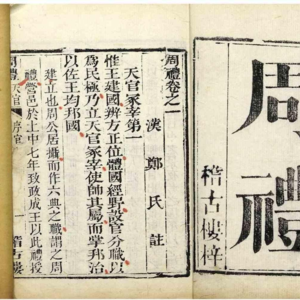 周禮
稽古樓梓
周禮卷之一
漢 鄭氏註
天官冢宰第一
惟王建國辨方正位體國經野設官分職以
爲民極乃立天官冢宰使帥其屬而掌邦治
以佐王均邦國
建立也周公居攝而作六典之職謂之周
禮營邑於土中七年致政成王以此禮授
周禮 天官 序官 稽古樓